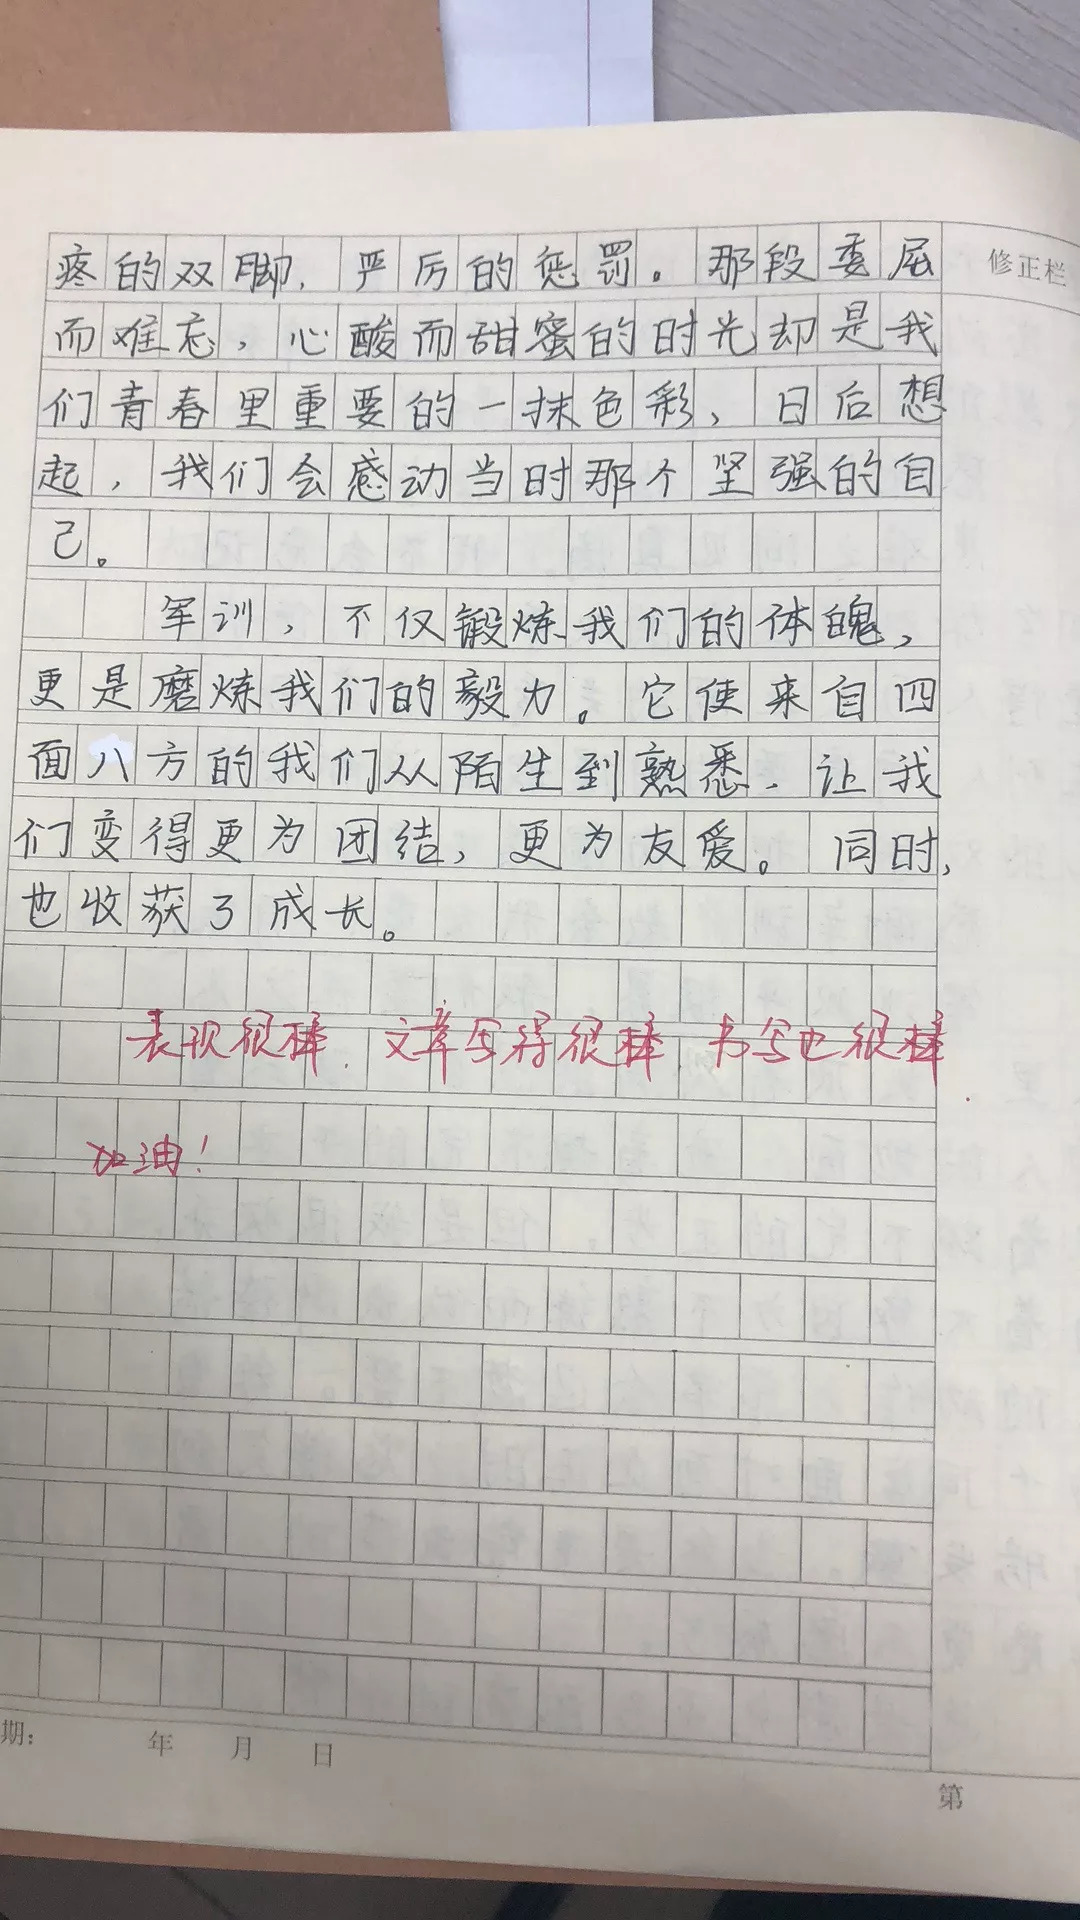 疼的双脚，严厉的惩罚。那段委屈
修正栏
而难忘，心酸而甜蜜的时光却是我
们青春里重要的一抹色彩，日后想
起，我们会感动当时那个坚强的自
己。
军训，不仅锻炼我们的体魄，
更是磨炼我们的毅力。它使来自四
面八方的我们从陌生到熟悉，让我
们变得更为团结，更为友爱。同时，
也收获了成长。
表现很棒．文章写得很棒．书写也很棒
加油！
期：　年　月　日
第